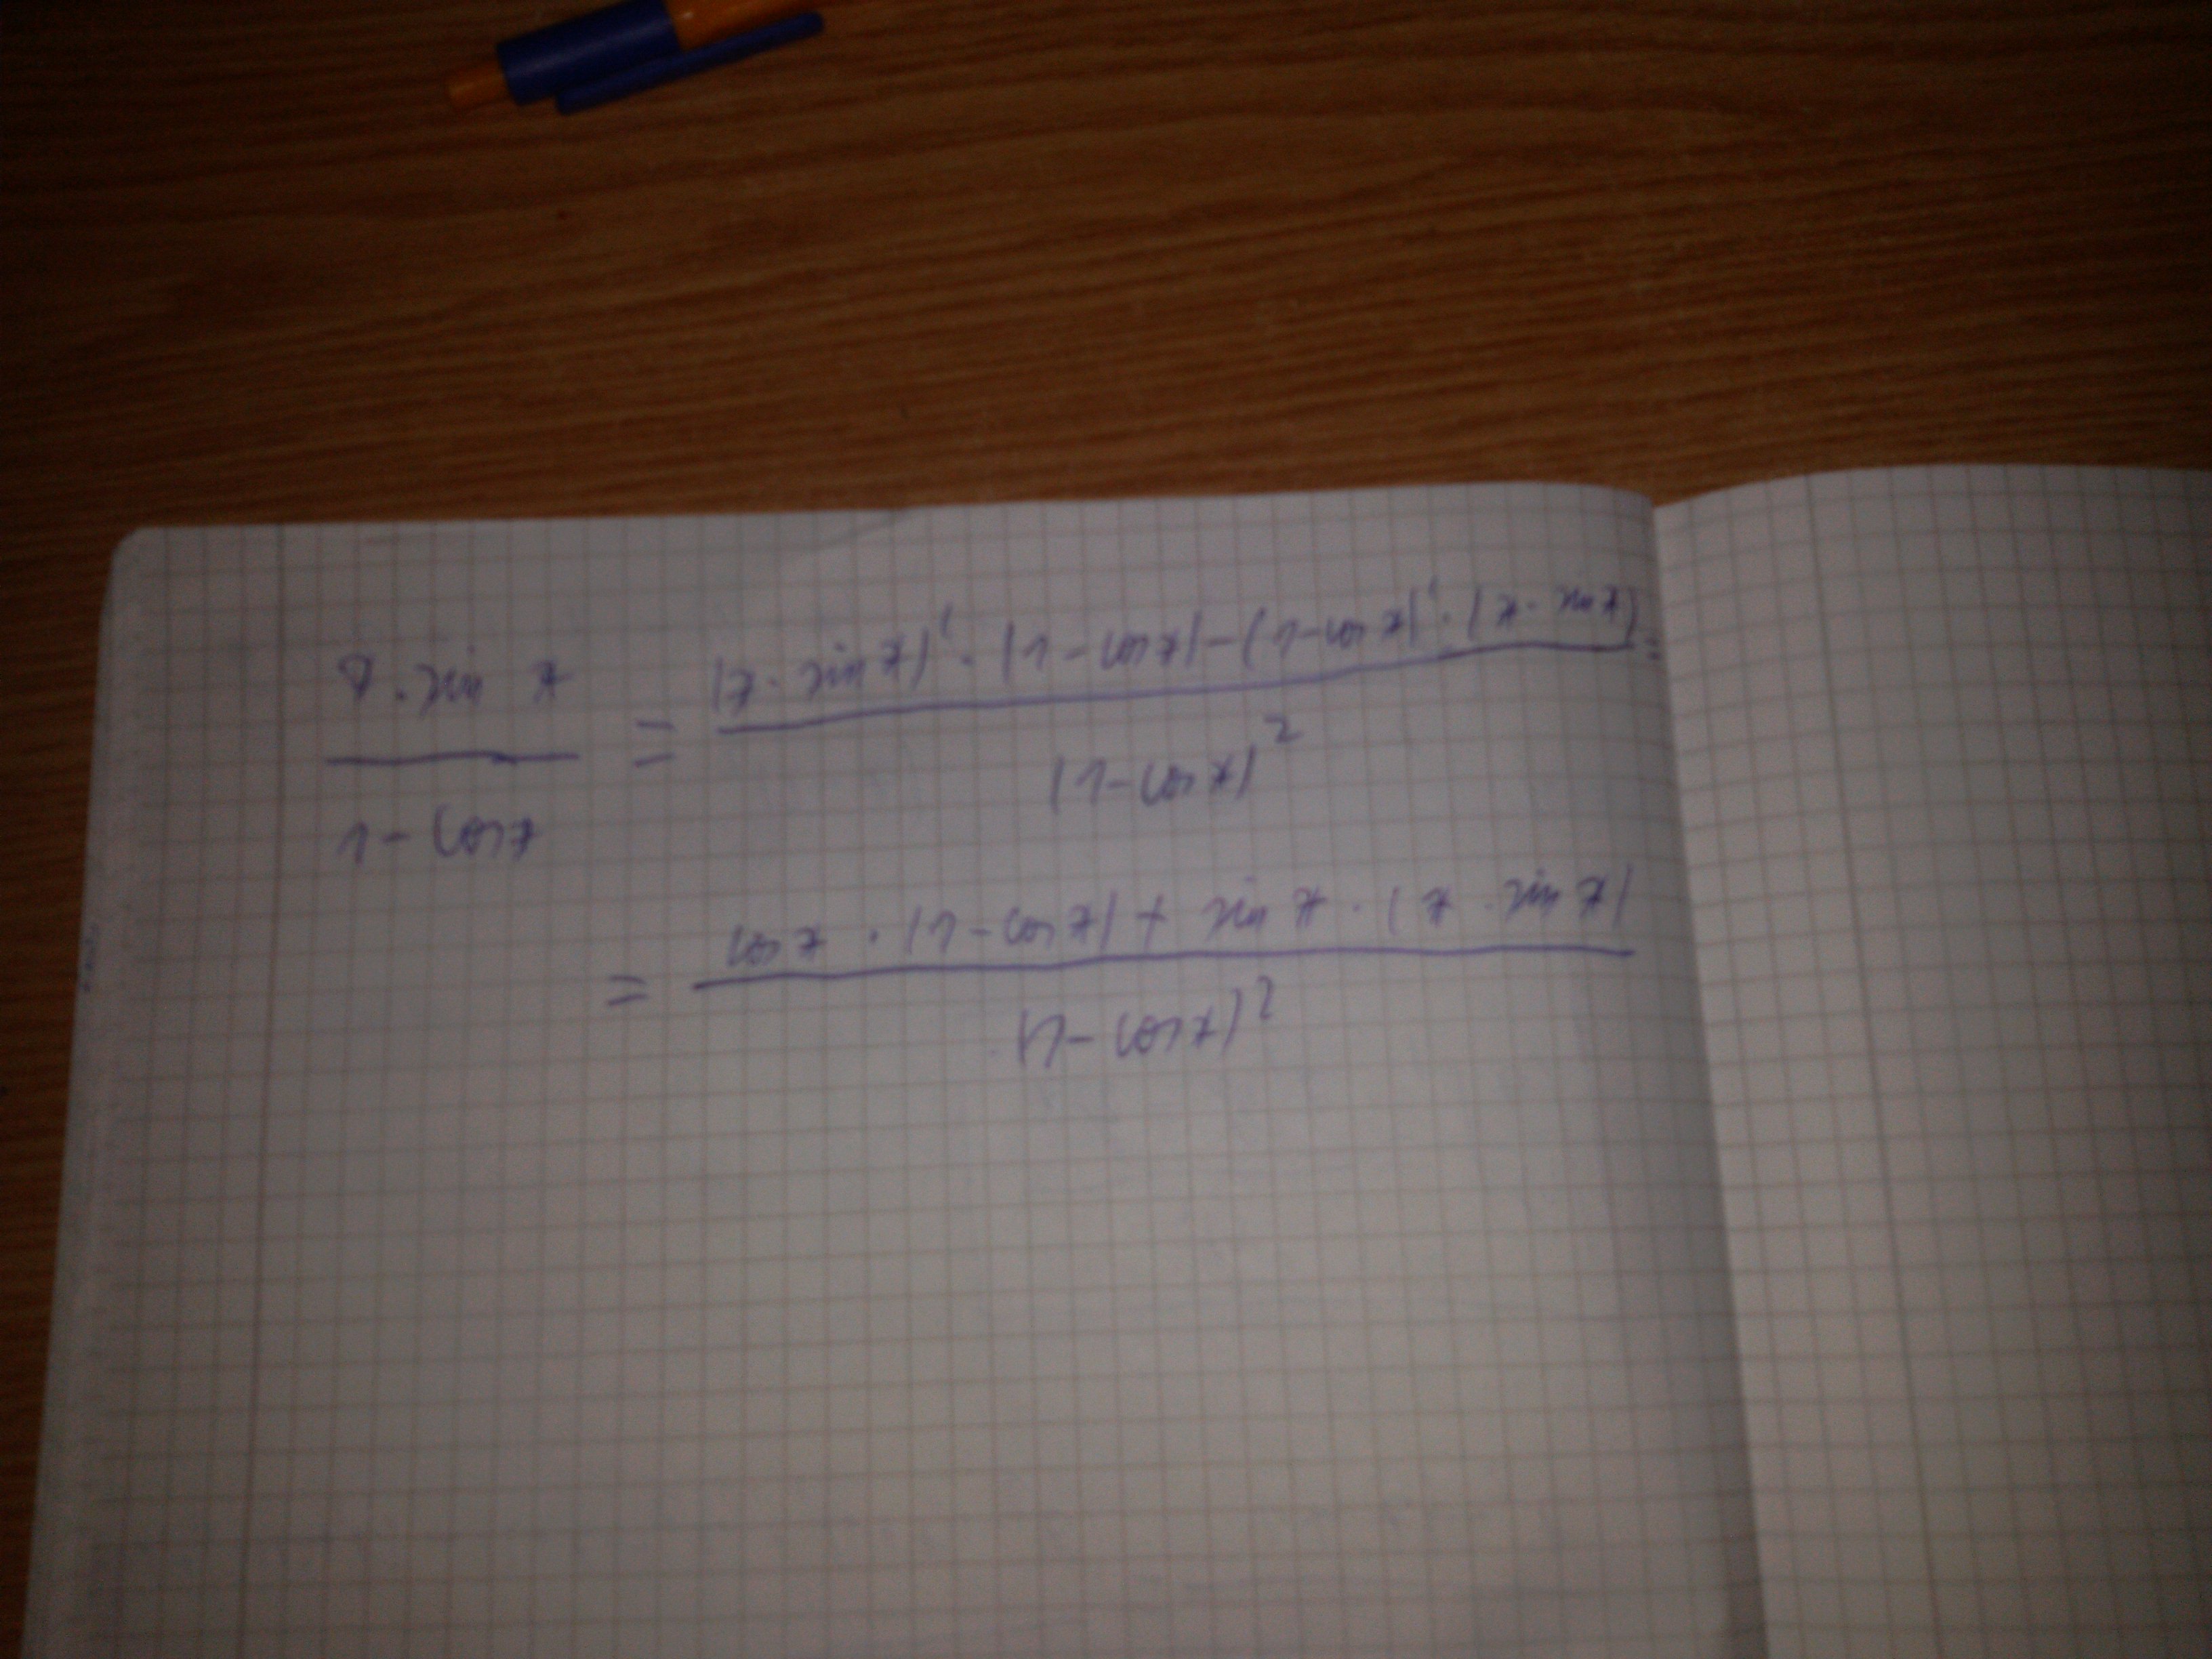 x · sin x / 1 - cos x = (x · sin x)' · (1 - cos x) - (1 - cos x)' · (x · sin x) / (1 - cos x)² =
= cos x · (1 - cos x) + sin x · (x · sin x) / (1 - cos x)²